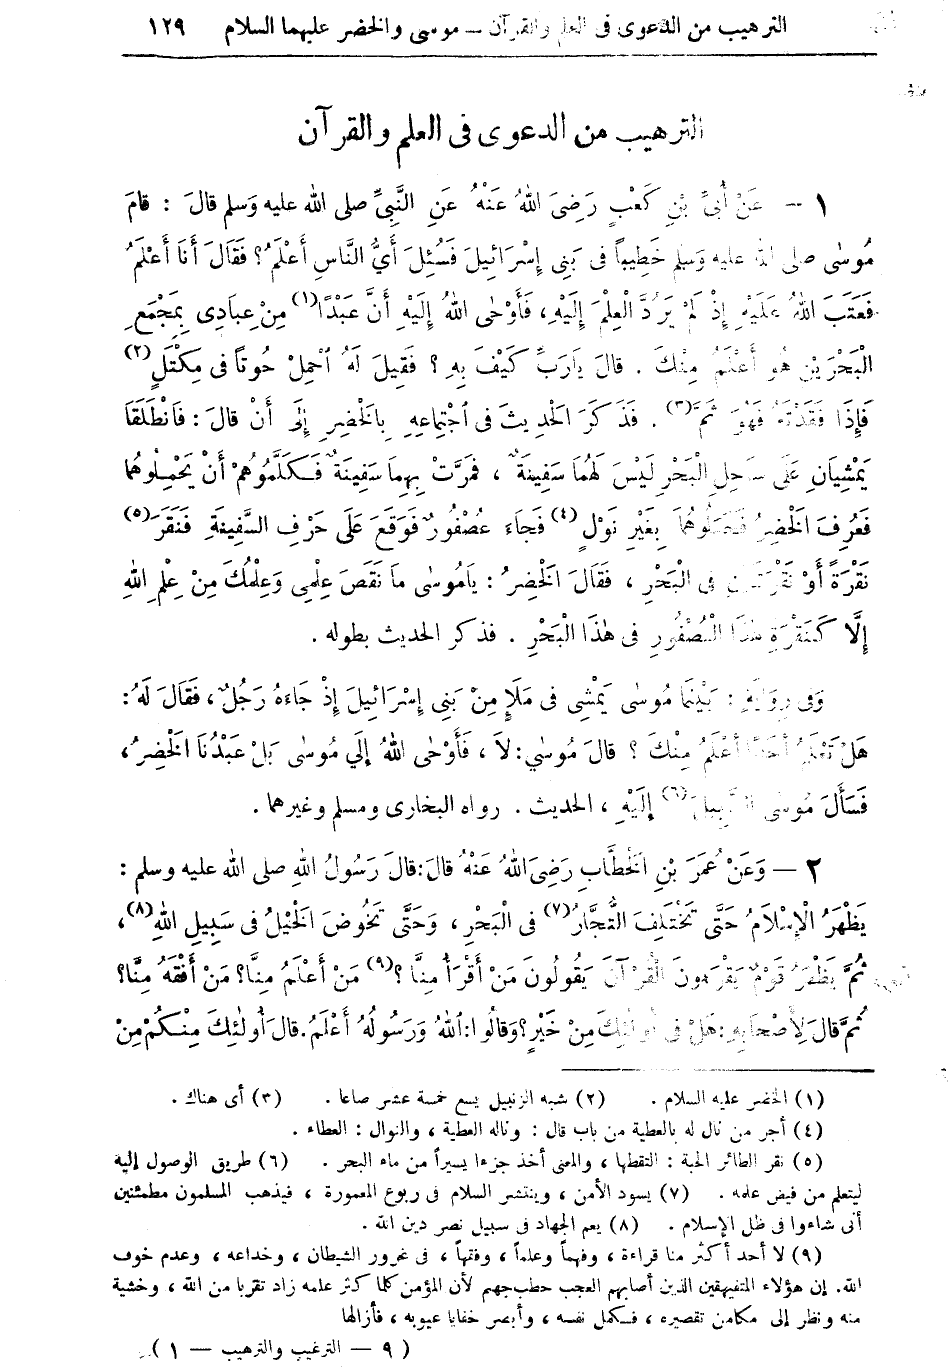 الترهيب من الدعوى فى العلم والقرآن – موسى والخضر عليهما السلام ١٢٩
الترهيب من الدعوى فى العلم والقرآن
١ – عَنْ أُبَىِّ بْنِ كَعْبٍ رَضِىَ اللهُ عَنْهُ عَنِ النَّبِيِّ صلى الله عليه وَسلم قالَ : قامَ
مُوسٰى صلى الله عليه وَسلم خَطِيباً فى بَنِى إِسْرَائِيلَ فَسُئِلَ أَيُّ النَّاسِ أَعْلَمُ ؟ فَقَالَ أَنَا أَعْلَمُ
فَعَتَبَ اللهُ عَلَيْهِ إِذْ لَمْ يَرُدَّ الْعِلْمَ إِلَيْهِ ، فَأَوْحٰى اللهُ إِلَيْهِ أَنَّ عَبْدًا(١) مِنْ عِبَادِى بِمَجْمَعِ
الْبَحْرَيْنِ هُوَ أَعْلَمُ مِنْكَ . قالَ يَارَبِّ كَيْفَ بِهِ ؟ فَقِيلَ لَهُ احْمِلْ حُوتاً فى مِكْتَلٍ(٢)
فَإِذَا فَقَدْتَهُ فَهُوَ ثَمَّ(٣) . فَذَكَرَ الْحَدِيثَ فى اجْتِماعِهِ بِالْخَضِرِ إِلَى أَنْ قالَ : فَانْطَلَقَا
يَمْشِيَانِ عَلَى سَاحِلِ الْبَحْرِ لَيْسَ لَهُمَا سَفِينَةٌ ، فَمَرَّتْ بِهِمَا سَفِينَةٌ فَكَلَّمُوهُمْ أَنْ يَحْمِلُوهُما
فَعُرِفَ الْخَضِرُ فَحَمَلُوهُمَا بِغَيْرِ نَوْلٍ(٤) فَجَاءَ عُصْفُورٌ فَوَقَعَ عَلَى حَرْفِ السَّفِينَةِ فَنَقَرَ(٥)
نَقْرَةً أَوْ نَقْرَتَيْنِ فى الْبَحْرِ ، فَقَالَ الْخَضِرُ : يَامُوسٰى ما نَقَصَ عِلْمِى وَعِلْمُكَ مِنْ عِلْمِ اللهِ
إِلَّا كَنَقْرَةِ هٰذَا الْعُصْفُورِ فى هٰذَا الْبَحْرِ . فذكر الحديث بطوله .
وَفى رِوَايَةٍ : بَيْنَمَا مُوسٰى يَمْشِى فى مَلَإٍ مِنْ بَنِى إِسْرَائِيلَ إِذْ جَاءَهُ رَجُلٌ ، فَقَالَ لَهُ :
هَلْ تَعْلَمُ أَحَدًا أَعْلَمُ مِنْكَ ؟ قالَ مُوسٰى : لاَ ، فَأَوْحٰى اللهُ إِلَي مُوسٰى بَلْ عَبْدُنَا الْخَضِرُ ،
فَسَأَلَ مُوسٰى السَّبِيلَ(٦) إِلَيْهِ ، الحديث . رواه البخارى ومسلم وغيرهما .
٢ – وَعَنْ عُمَرَ بْنِ الْخَطَّابِ رَضِىَ اللهُ عَنْهُ قالَ : قالَ رَسُولُ اللهِ صلى الله عليه وسلم :
يَظْهَرُ الْإِسْلاَمُ حَتَّى تَخْتَلِفَ التُّجَّارُ(٧) فى الْبَحْرِ ، وَحَتَّى تَخُوضَ الْخَيْلُ فى سَبِيلِ اللهِ(٨) ،
ثُمَّ يَظْهَرُ قَوْمٌ يَقْرَءُونَ الْقُرْآنَ يَقُولُونَ مَنْ أَقْرَأُ مِنَّا ؟(٩) مَنْ أَعْلَمُ مِنَّا ؟ مَنْ أَفْقَهُ مِنَّا ؟
ثُمَّ قالَ لِأَصْحَابِهِ : هَلْ فى أُولٰئِكَ مِنْ خَيْرٍ ؟ وَقالُوا : اللهُ وَرَسُولُهُ أَعْلَمُ . قالَ أُولٰئِكَ مِنْكُمْ مِنْ
(١) الخضر عليه السلام . (٢) شبه الزنبيل يسع خمسة عشر صاعا . (٣) أى هناك .
(٤) أجر من نال له بالعطية من باب قال : وناله العطية ، والنوال : العطاء .
(٥) نقر الطائر الحبة : التقطها ، والمعنى أخذ جزءا يسيراً من ماء البحر . (٦) طريق الوصول إليه
ليتعلم من فيض علمه . (٧) يسود الأمن ، وينتشر السلام فى ربوع المعمورة ، فيذهب المسلمون مطمئنين
أنى شاءوا فى ظل الإسلام . (٨) يعم الجهاد فى سبيل نصر دين الله .
(٩) لا أحد أكثر منا قراءة ، وفهماً وعلماً ، وفقهاً ، فى غرور الشيطان ، وخداعه ، وعدم خوف
الله . إن هؤلاء المتفيهقين الذين أصابهم العجب حطب جهنم لأن المؤمن كلما كثر علمه زاد تقربا من الله ، وخشية
منه ونظر إلى مكامن تقصيره ، فكمل نفسه ، وأبصر خفايا عيوبه ، فأزالها
( ٩ – الترغيب والترهيب – ١ )